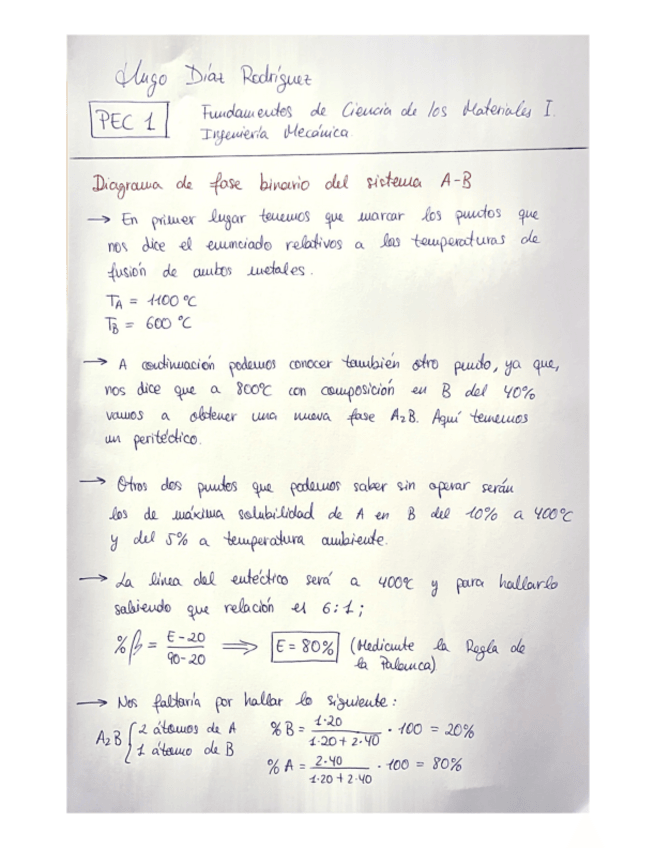 Hugo Díaz Rodríguez
PEC 1
Fundamentos de Ciencia de los Materiales I.
Ingeniería Mecánica.
Diagrama de fase binario del sistema A-B
→ En primer lugar tenemos que marcar los puntos que
nos dice el enunciado relativos a las temperaturas de
fusión de ambos metales.
TA = 1100 ºC
TB = 600 ºC
→ A continuación podemos conocer también otro punto, ya que,
nos dice que a 800ºC con composición en B del 40%
vamos a obtener una nueva fase A2B. Aquí tenemos
un peritéctico.
→ Otros dos puntos que podemos saber sin operar serán
los de máxima solubilidad de A en B del 10% a 400ºC
y del 5% a temperatura ambiente.
→ La línea del eutéctico será a 400ºC y para hallarlo
sabiendo que relación es 6:1;
%β = E-20 / 90-20 ⟹ E = 80% (Mediante la Regla de
la Palanca)
→ Nos faltaría por hallar lo siguiente:
A2B { 2 átomos de A
1 átomo de B
%B = 1·20 / 1·20 + 2·40 · 100 = 20%
%A = 2·40 / 1·20 + 2·40 · 100 = 80%